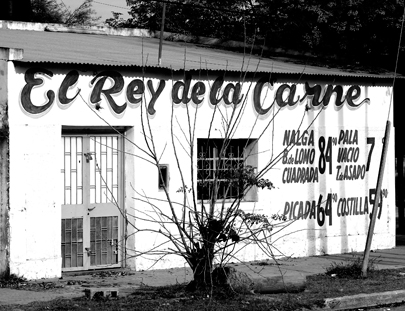 El Rey de la Carne
NALGA
B. de LOMO
CUADRADA
84
PALA
VACIO
T. de ASADO
7
PICADA 64 COSTILLA 59